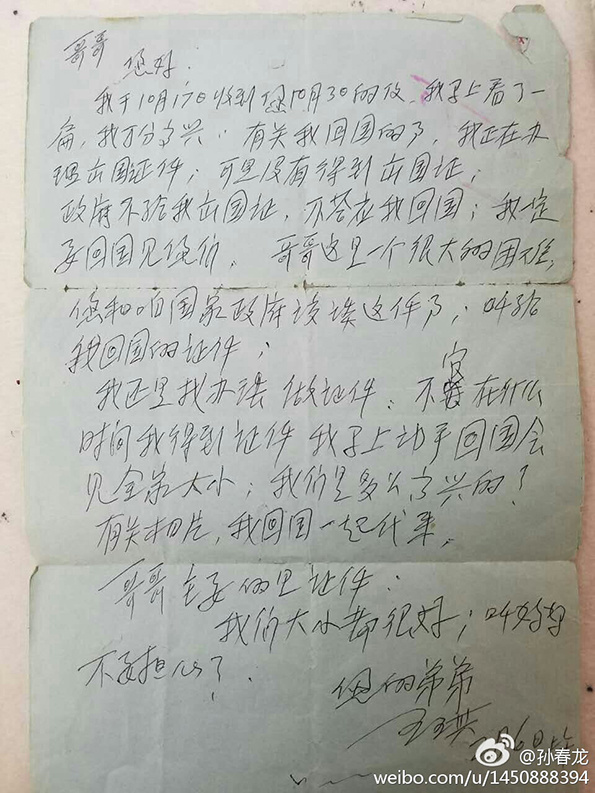 哥哥
您好.
我于10月17日收到您10月3日的信. 我马上看了一
扁, 我十分高兴. 有关我回国的事, 我正在办
理出国证件; 可是没有得到出国证;
政府不给我出国证, 不答应我回国; 我一定
要回国见你们. 哥哥这是一个很大的困难,
您和咱国家政府谈谈这件事; 叫给
我回国的证件;
我还是找办法做证件. 不定在什么
时间我得到证件 我马上动手回国会
见全家大小; 我们是多么高兴的?
有关相片, 我回国一起代来.
哥哥主要的是证件.
我们大小都很好; 叫妈妈
不要担心了?
您的弟弟
王琪
@孙春龙
weibo.com/u/1450888394